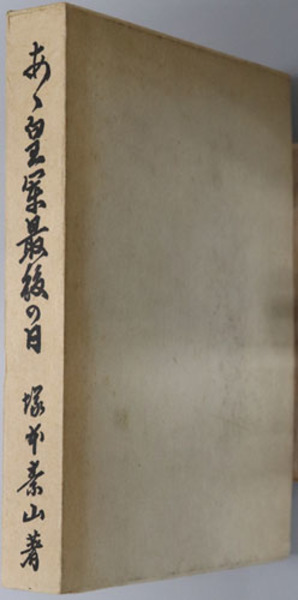 あゝ皇軍最後の日 塚本素山著